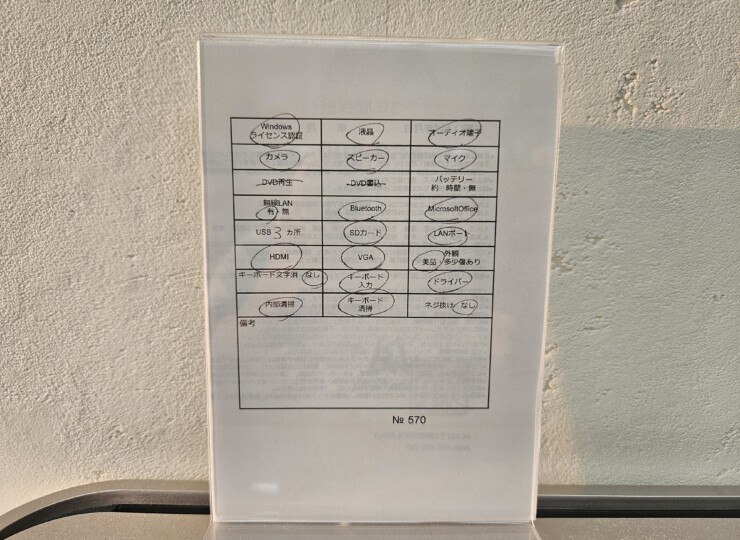 Windows
ライセンス認証
液晶
オーディオ端子
カメラ
スピーカー
マイク
DVD再生
DVD書込
バッテリー
約 時間・無
無線LAN
有・無
Bluetooth
MicrosoftOffice
USB 3 カ所
SDカード
LANポート
HDMI
VGA
外観
美品・多少傷あり
キーボード文字消 なし
キーボード
入力
ドライバー
内部清掃
キーボード
清掃
ネジ抜け なし
備考
№ 570